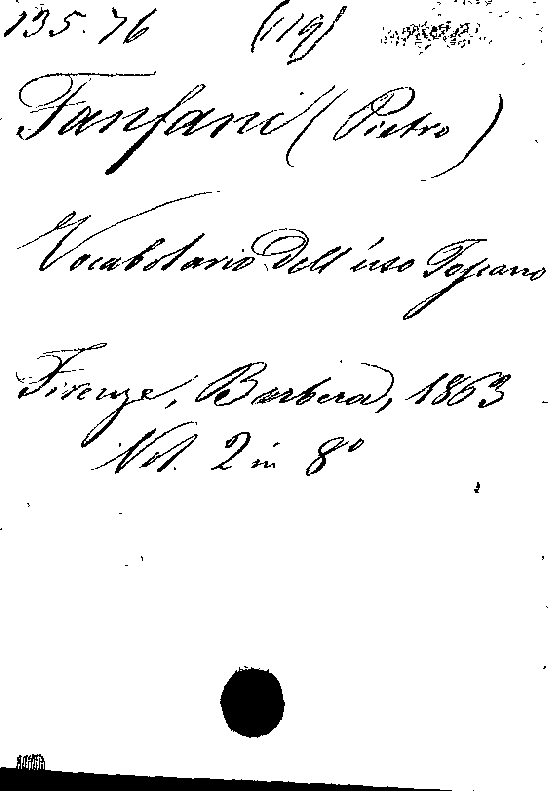 135.76 (119)
Fanfani (Pietro)
Vocabolario Dell'uso Toscano
Firenze, Barbera, 1863
Vol. 2 in 8º